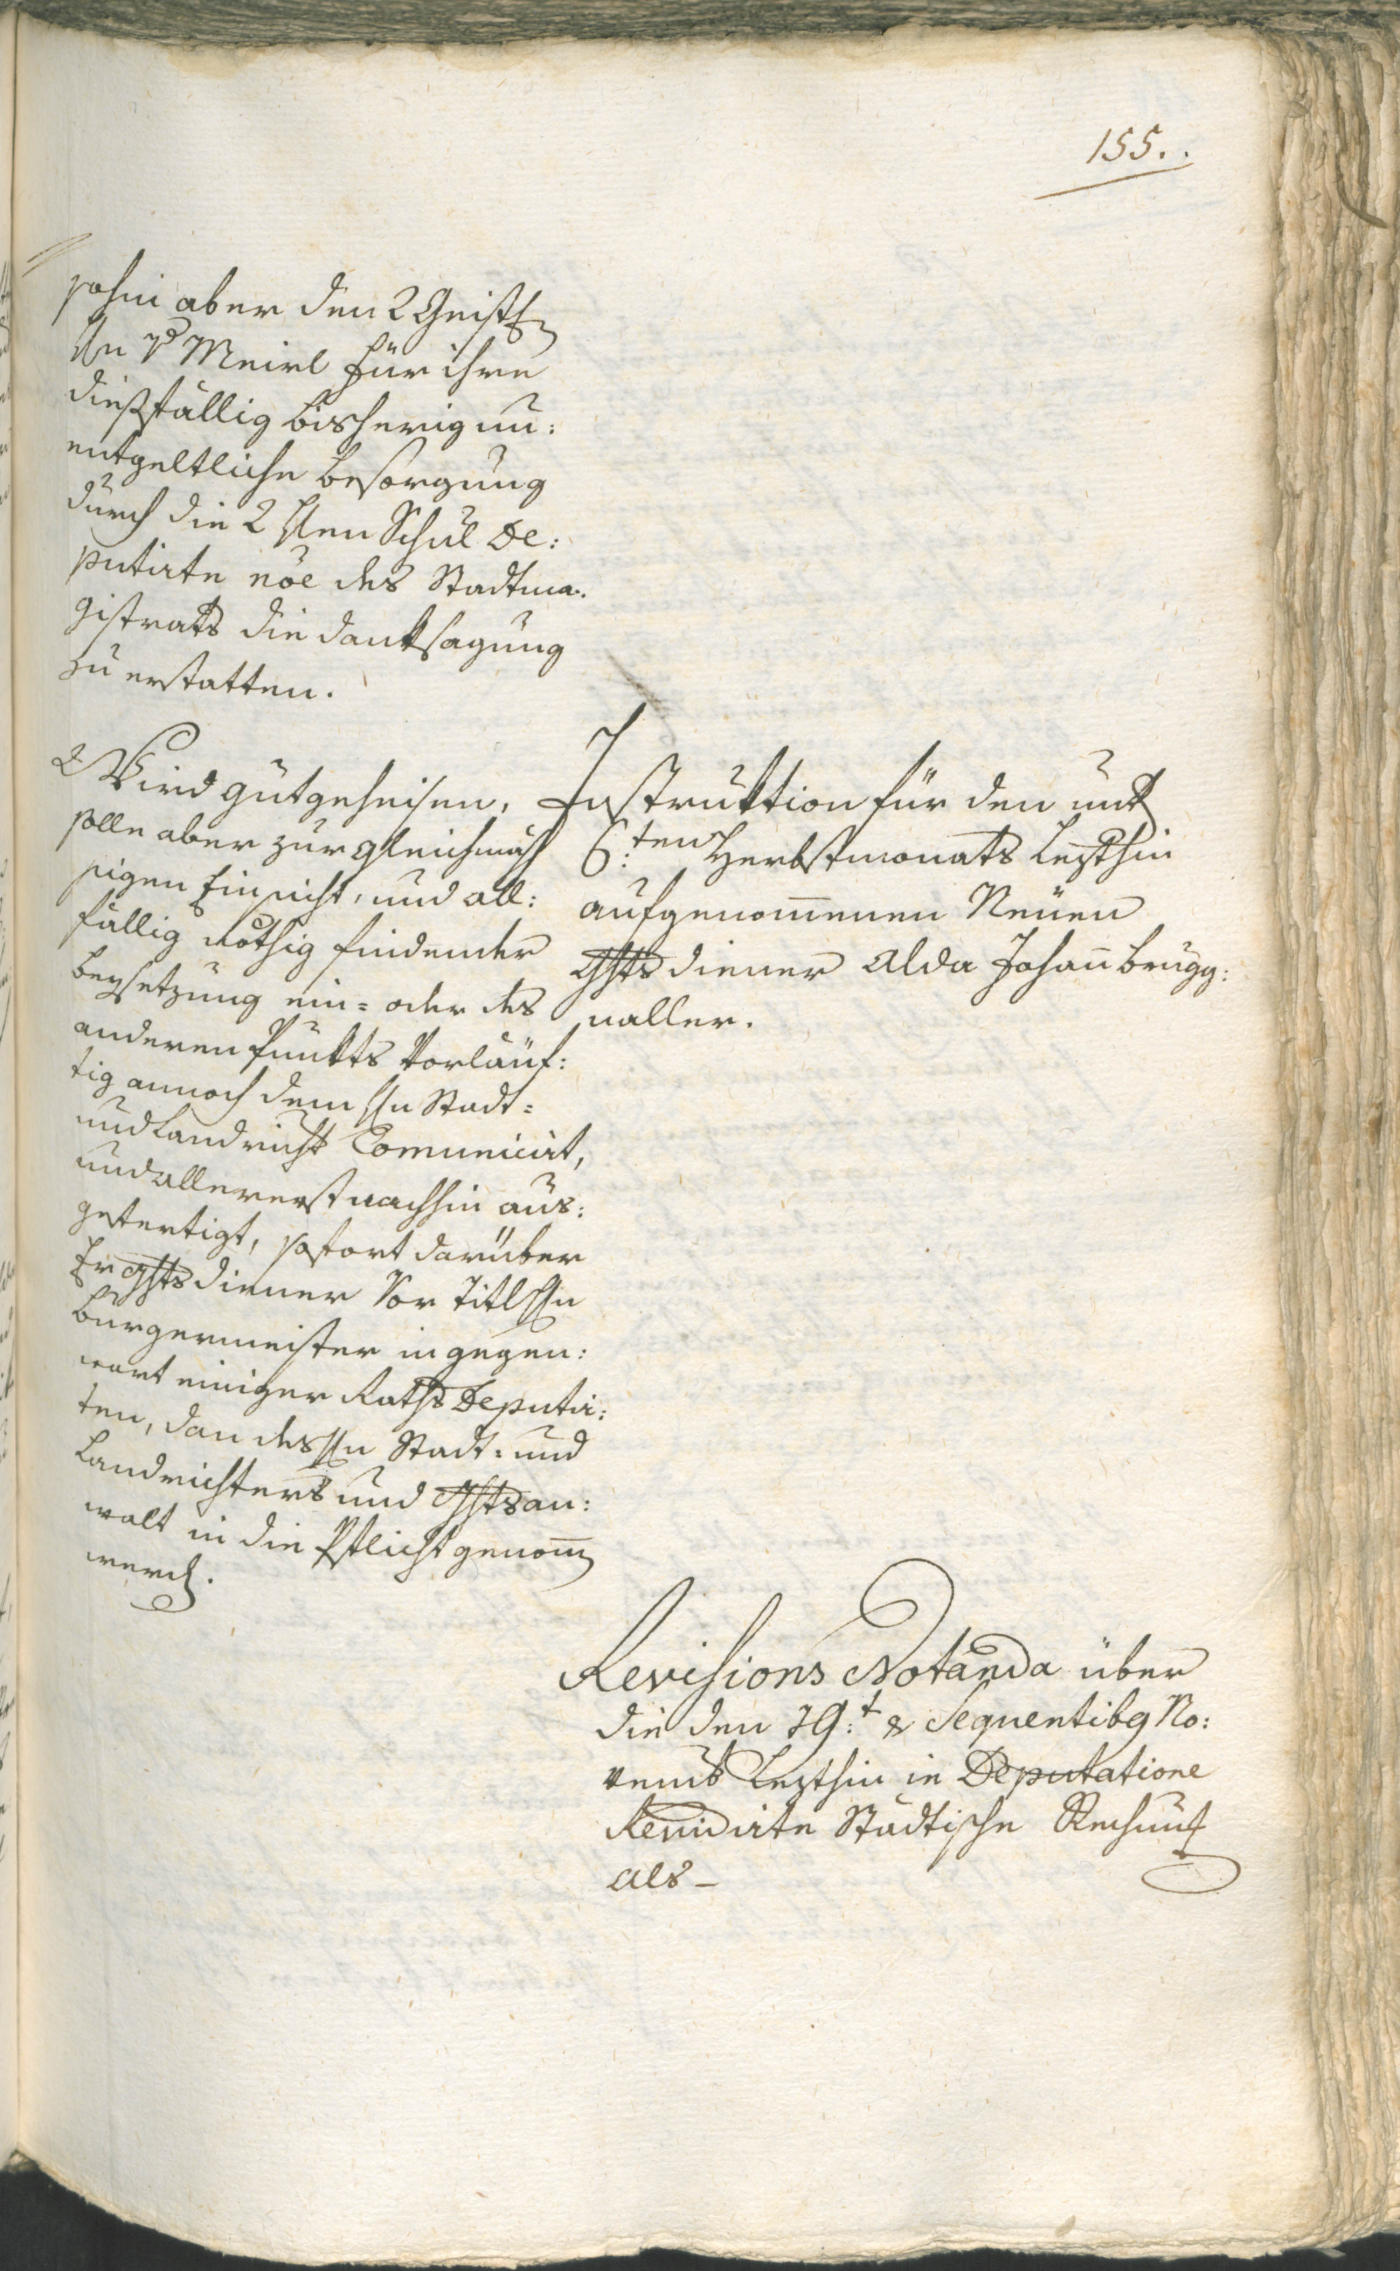 155..
sohin aber den 2 Geistl
Hn v Meirl für ihre
dießfällig bisherig un:
entgeltliche besorgung
durch die 2 Hen Schul De:
putirte nõe des Stadtma:
gistrats die danksagung
zu erstatten.
Wird gutgeheisen,
solle aber zur gleichmäs
sigen Einsicht, und all:
fällig nöthig findender
beysetzung ein= oder des
anderen Punkts Vorläuf:
tig annoch dem Hn Stadt=
und Landricht Comunicirt,
und allererst nachhin aus:
gefertigt, sofort darüber
Er Ghtsdiener Vor Titl Hn
burgermeister in gegen:
wart einiger Raths Deputir:
ten, dan des Hn Stadt= und
Landrichters und Ghtsan:
walt in die Pflicht genom̄
werd.
Instruktion für den unt
6:ten Herbstmonats lezthin
aufgenom̄enen Neuen
Ghtsdiener alda Johan̄ brugg:
naller.
Revisions Notanda über
die den 19:t & Sequentibg No:
vemb lezthin in Deputatione
Revidirte Städtische Rechnung
als –